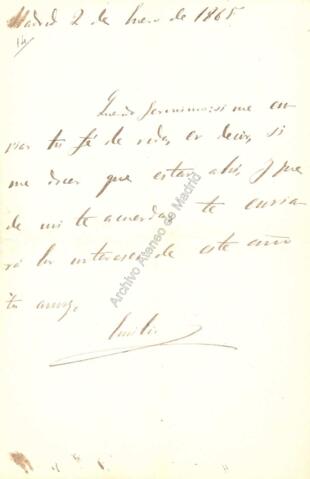 Madrid 2 de Enero de 1865
14
Querido Geronimo: si me en
vias tu fé de vida, es decir, si
me dices que estas ahi, y que
de mi te acuerdas, te envia
ré los intereses de este año
tu amigo,
Emilio
Archivo Ateneo de Madrid